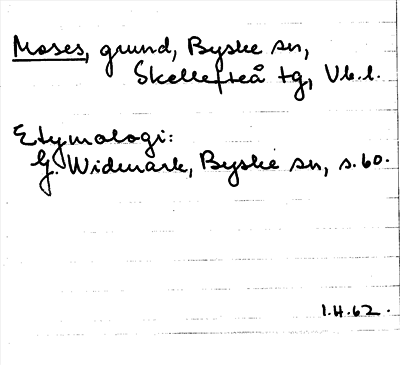 Moses, grund, Byske sn,
Skellefteå tg, Vb.l.
Etymologi:
G. Widmark, Byske sn, s. 60.
1.H.62.